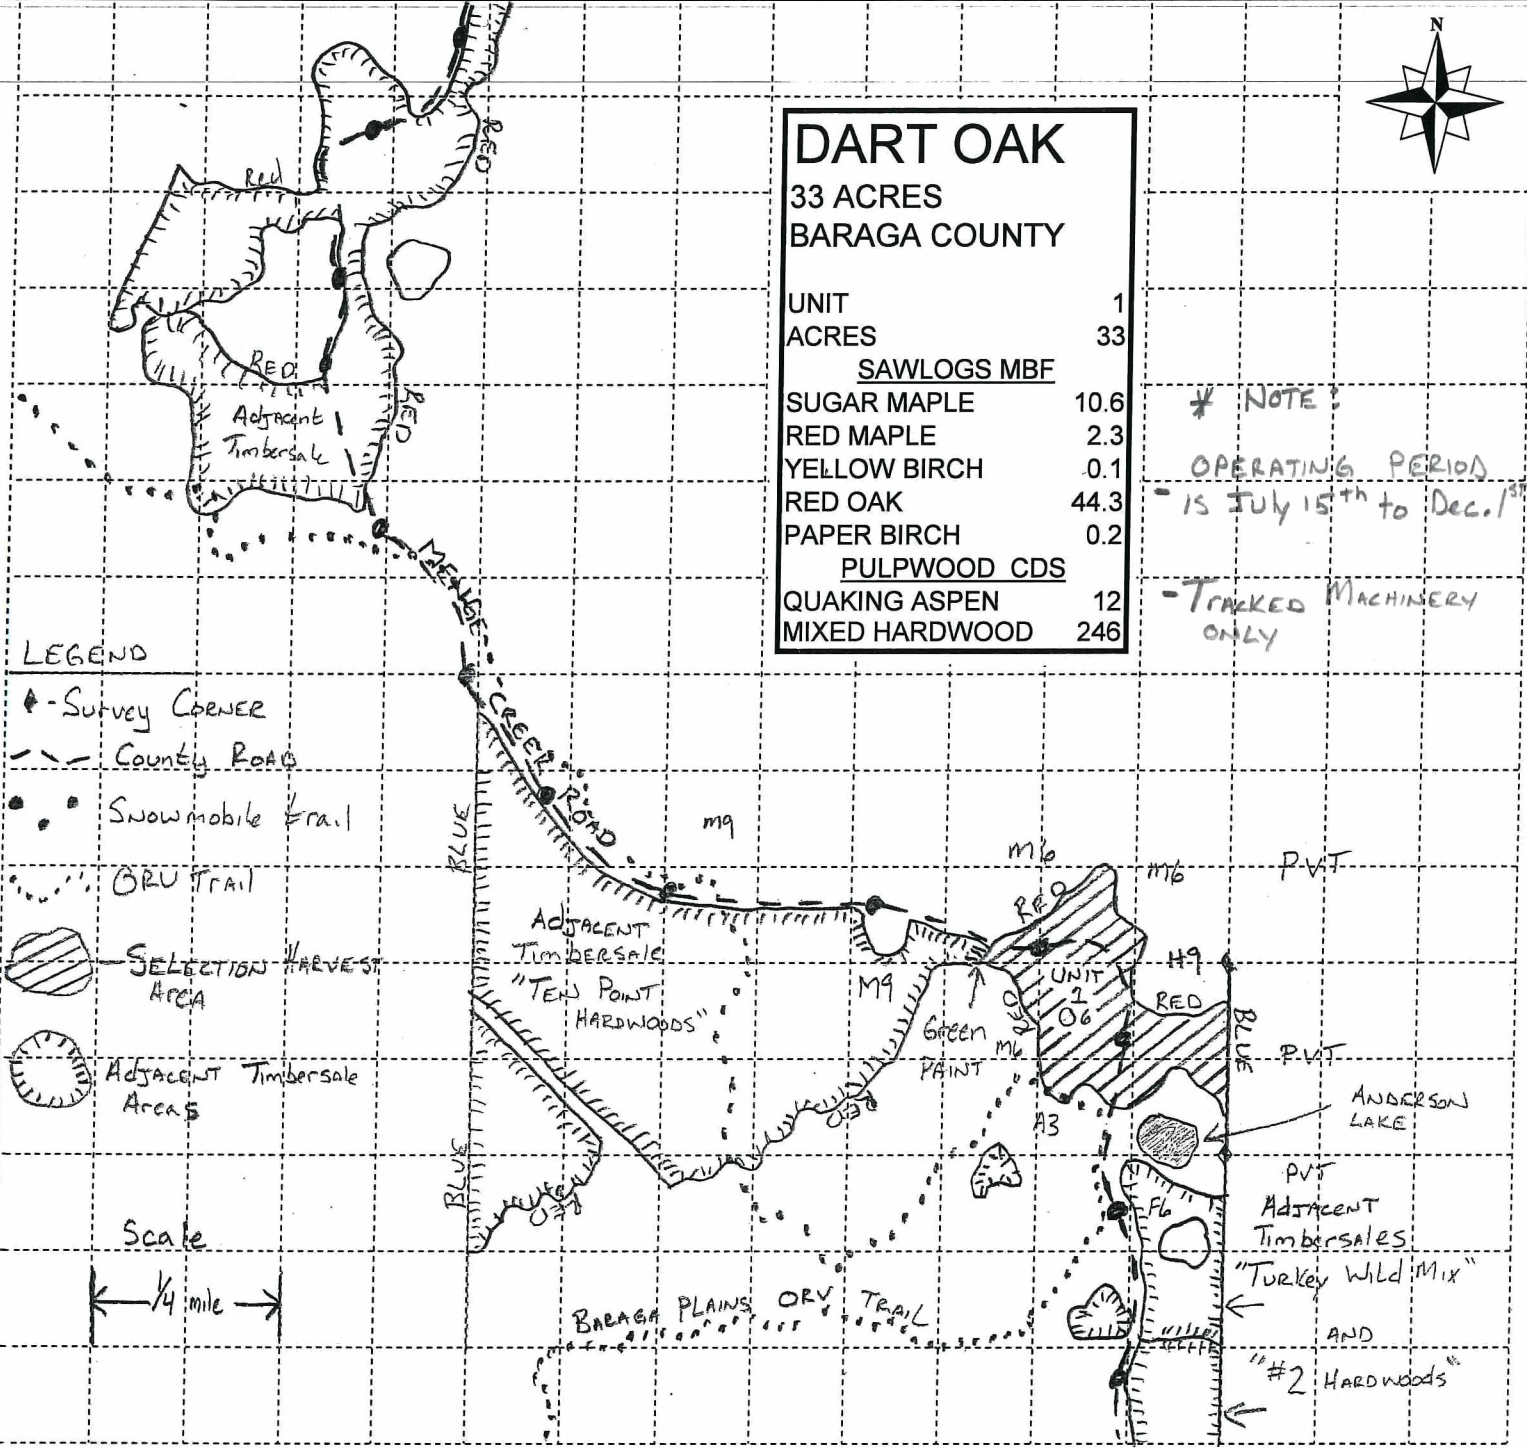 N
DART OAK
33 ACRES
BARAGA COUNTY
UNIT 1
ACRES 33
SAWLOGS MBF
SUGAR MAPLE 10.6
RED MAPLE 2.3
YELLOW BIRCH 0.1
RED OAK 44.3
PAPER BIRCH 0.2
PULPWOOD CDS
QUAKING ASPEN 12
MIXED HARDWOOD 246
* NOTE:
OPERATING PERIOD
- IS July 15th to Dec. 1st
- TRACKED MACHINERY
ONLY
RED
Red
RED
RED
Adjacent
Timbersale
MENGE CREEK ROAD
LEGEND
- Survey CORNER
County ROAD
Snowmobile trail
ORV Trail
- SELECTION HARVEST
AreA
ADJACENT Timbersale
Areas
Scale
1/4 mile
BLUE
BLUE
M9
M6
RED
M6
PVT
ADJACENT
Timbersale
"TEN POINT
HARDWOODS"
M9
UNIT
1
O6
H9
RED
RED
BLUE
PVT
Green
PAINT
M6
RED
RED
A3
ANDERSON
LAKE
F6
PVT
ADJACENT
Timbersales
"Turkey Wild Mix"
AND
"#2 HARDWOODS"
BARAGA PLAINS ORV TRAIL